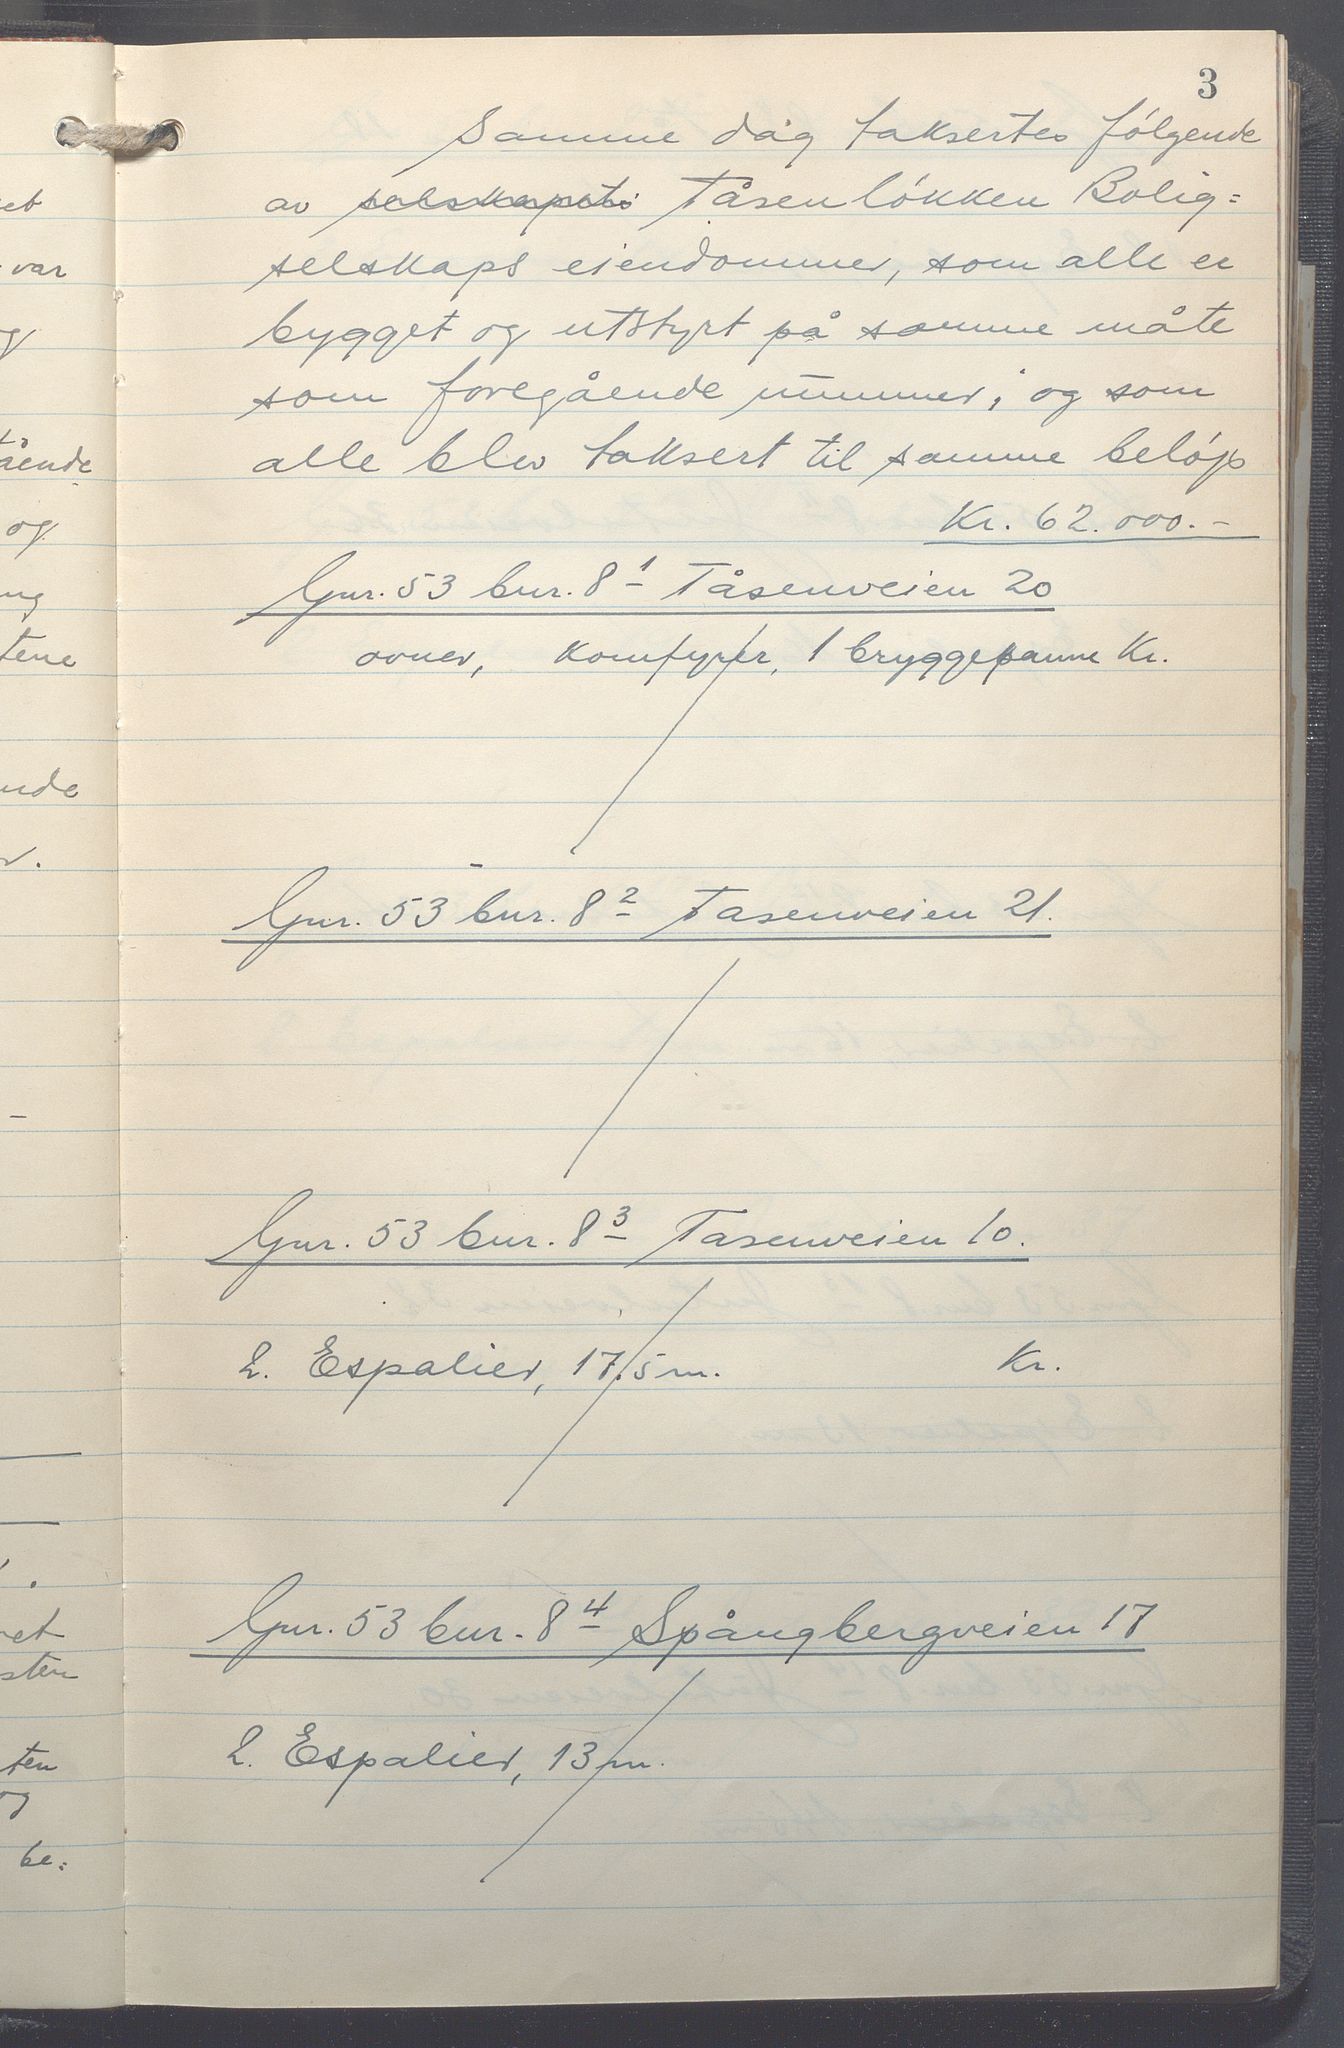 3
Samme dag taksertes følgende
av selskapets Tåsenløkken Bolig=
selskaps eiendommer, som alle er
bygget og utstyrt på samme måte
som foregående nummer, og som
alle blev taksert til samme beløp
Kr. 62.000.-
Gnr. 53 bnr. 8¹ Tåsenveien 20
ovner, komfyrer, 1 bryggepanne Kr.
Gnr. 53 bnr. 8² Tasenveien 21.
Gnr. 53 bnr. 8³ Tasenveien 10.
2. Espalier, 17.5 m. Kr.
Gnr. 53 bnr. 8⁴ Spångbergveien 17
2. Espalier, 13 m.